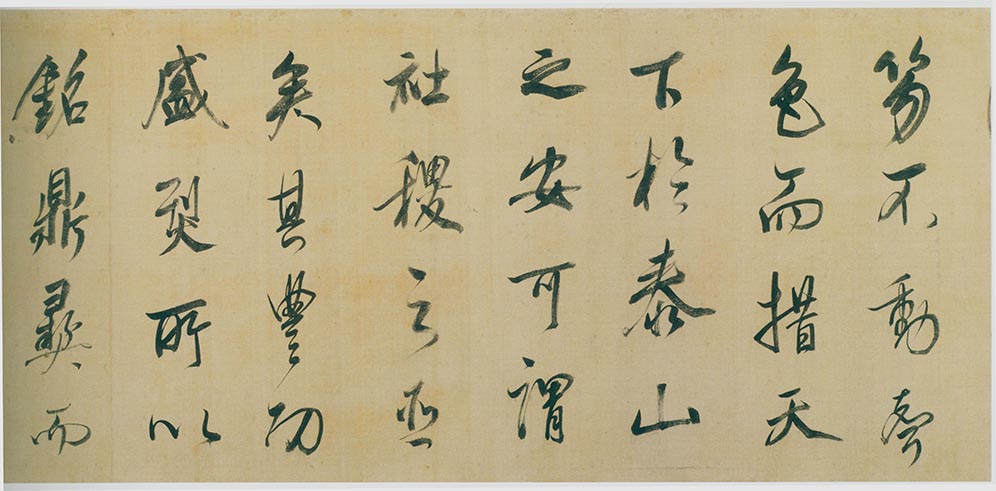 笏不動聲
色而措天
下於泰山
之安可謂
社稷之臣
矣其豐功
盛烈所以
銘鼎彝而